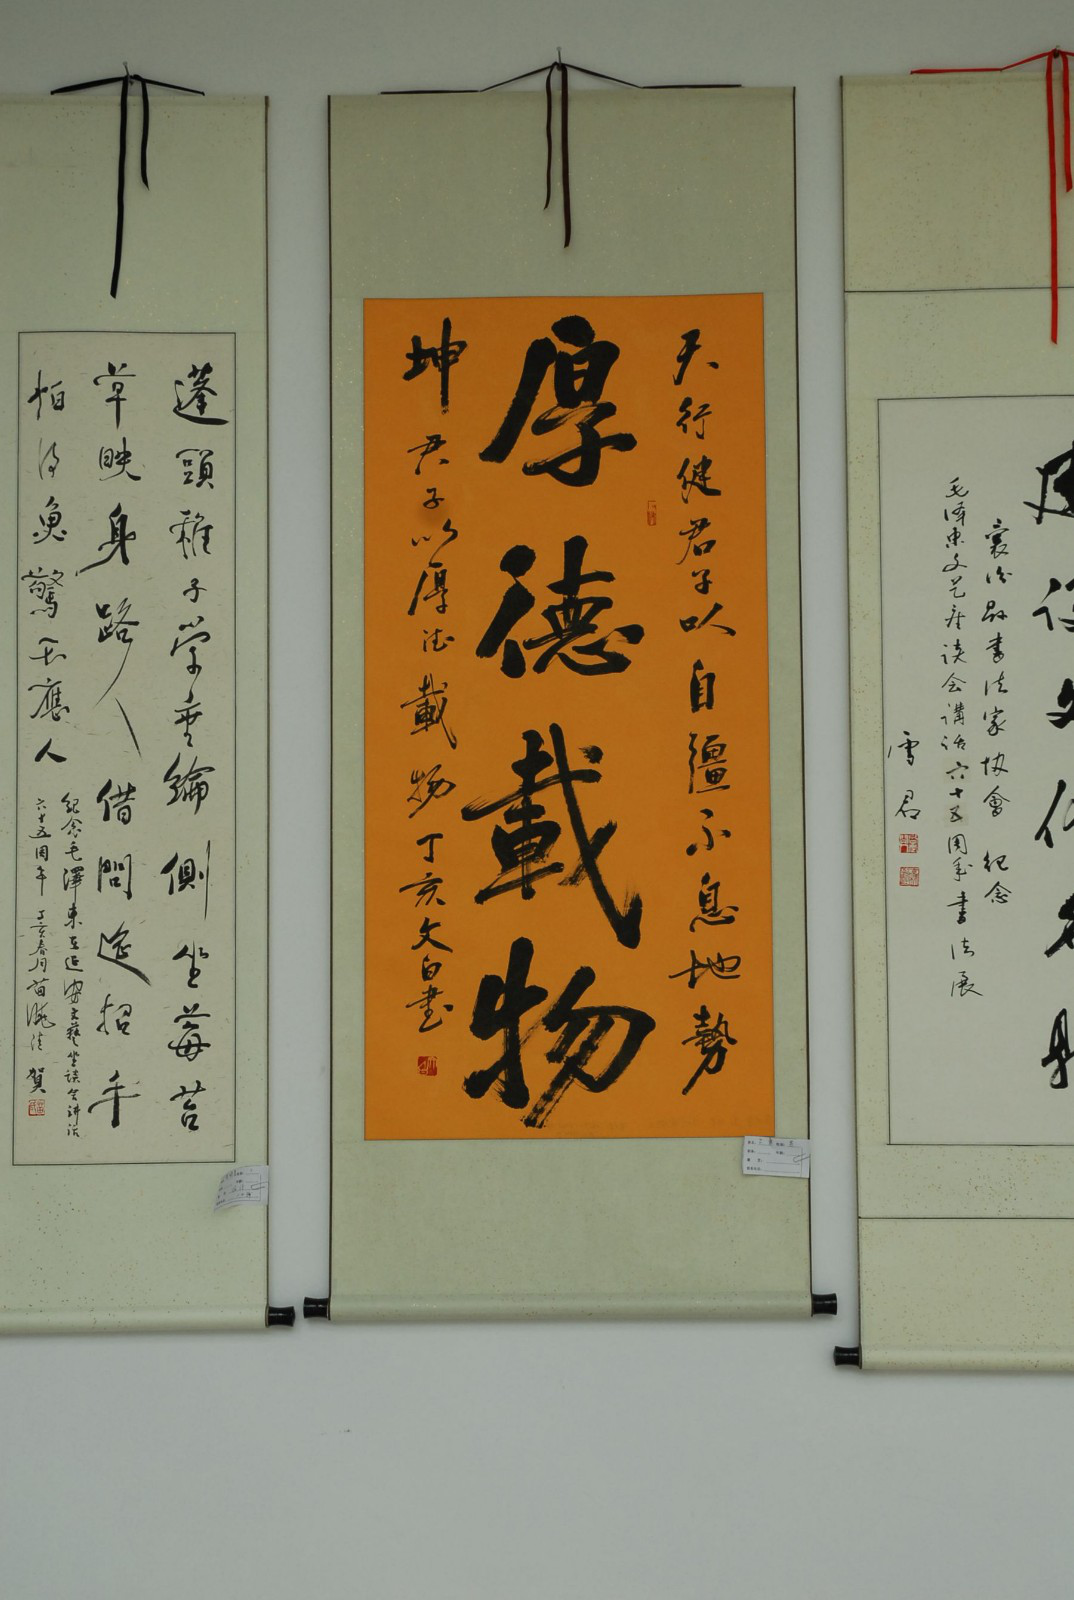 蓬頭稚子學垂綸側坐莓苔
草映身路人借問遙招手
怕得魚驚不應人
紀念毛澤東在延安文藝坐談会讲话
六十五周年 丁亥春月苗
賀
天行健君子以自彊不息地勢
厚德載物
坤君子以厚德載物丁亥文白書
襄汾縣書法家協會 紀念
毛泽东文艺座谈会講话六十五周年書法展
雪君